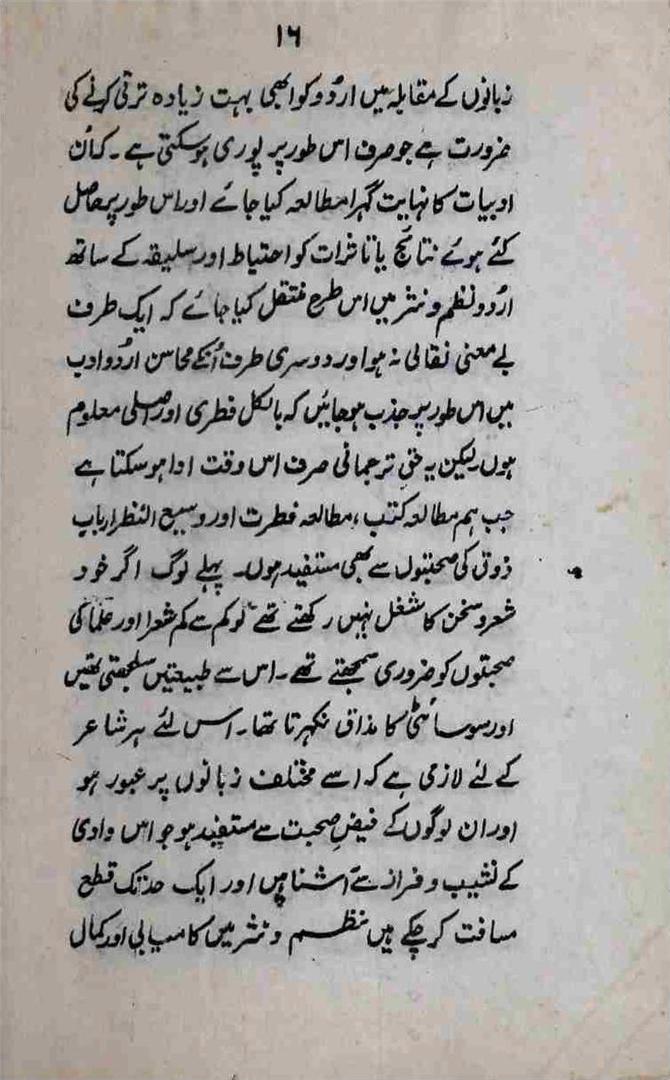 ۱۶
زبانوں کے مقابلہ میں اردو کو ابھی بہت زیادہ ترقی کرنے کی
ضرورت ہے جو صرف اس طور پر پوری ہو سکتی ہے۔ کہ اُن
ادبیات کا نہایت گہرا مطالعہ کیا جائے اور اس طور پر حاصل
کئے ہوئے نتائج یا تاثرات کو احتیاط اور سلیقہ کے ساتھ
اردو نظم و نثر میں اس طرح منتقل کیا جائے کہ ایک طرف
بے معنی نقالی نہ ہو اور دوسری طرف اُنکے محاسن اردو ادب
میں اس طور پر جذب ہو جائیں کہ بالکل فطری اور اصلی معلوم
ہوں لیکن یہ حقِ ترجمانی صرف اس وقت ادا ہو سکتا ہے
جب ہم مطالعہ کتب، مطالعہ فطرت اور وسیع النظر ارباب
ذوق کی صحبتوں سے بھی مستفید ہوں۔ پہلے لوگ اگر خود
شعر و سخن کا شغل نہیں رکھتے تھے تو کم سے کم شعرا اور علما کی
صحبتوں کو ضروری سمجھتے تھے۔ اس سے طبیعتیں سلجھتی تھیں
اور سوسائٹی کا مذاق نکھرتا تھا۔ اس لئے ہر شاعر
کے لئے لازمی ہے کہ اسے مختلف زبانوں پر عبور ہو
اور ان لوگوں کے فیضِ صحبت سے مستفید ہو جو اس وادی
کے نشیب و فراز سے آشنا ہیں اور ایک حد تک قطع
مسافت کر چکے ہیں نظم و نثر میں کامیابی اور کمال